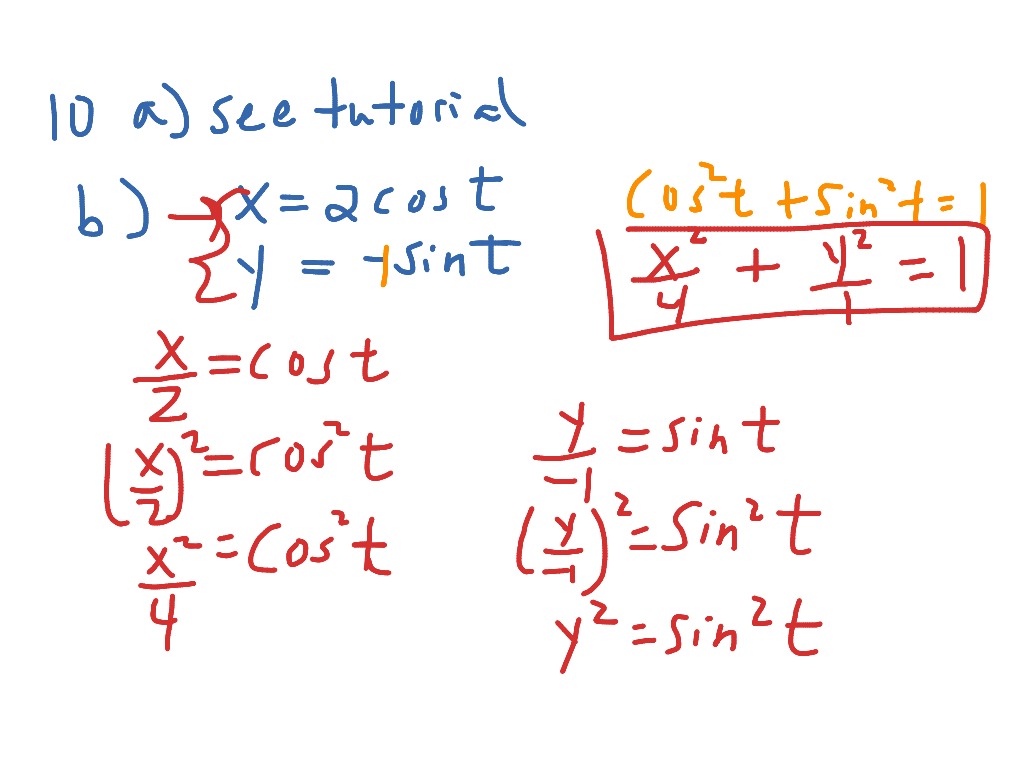 10 a) see tutorial
b) → { x = 2 cos t
y = -1 sin t
cos² t + sin² t = 1
x²/4 + y²/1 = 1
x/2 = cos t
(x/2)² = cos² t
x²/4 = cos² t
y/-1 = sin t
(y/-1)² = sin² t
y² = sin² t